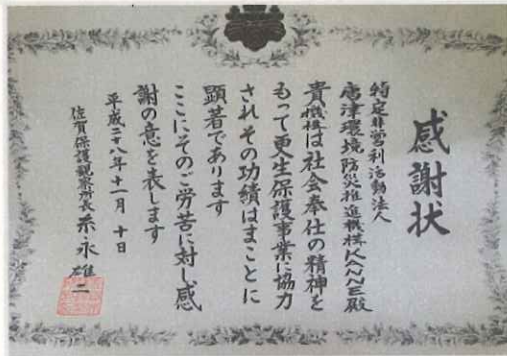 感謝状
特定非営利活動法人
唐津環境防災推進機構KANNE殿
貴機構は社会奉仕の精神を
もって更生保護事業に協力
されその功績はまことに
顕著であります
ここにそのご労苦に対し感
謝の意を表します
平成二十八年十一月 十日
佐賀保護観察所長 糸永雄二